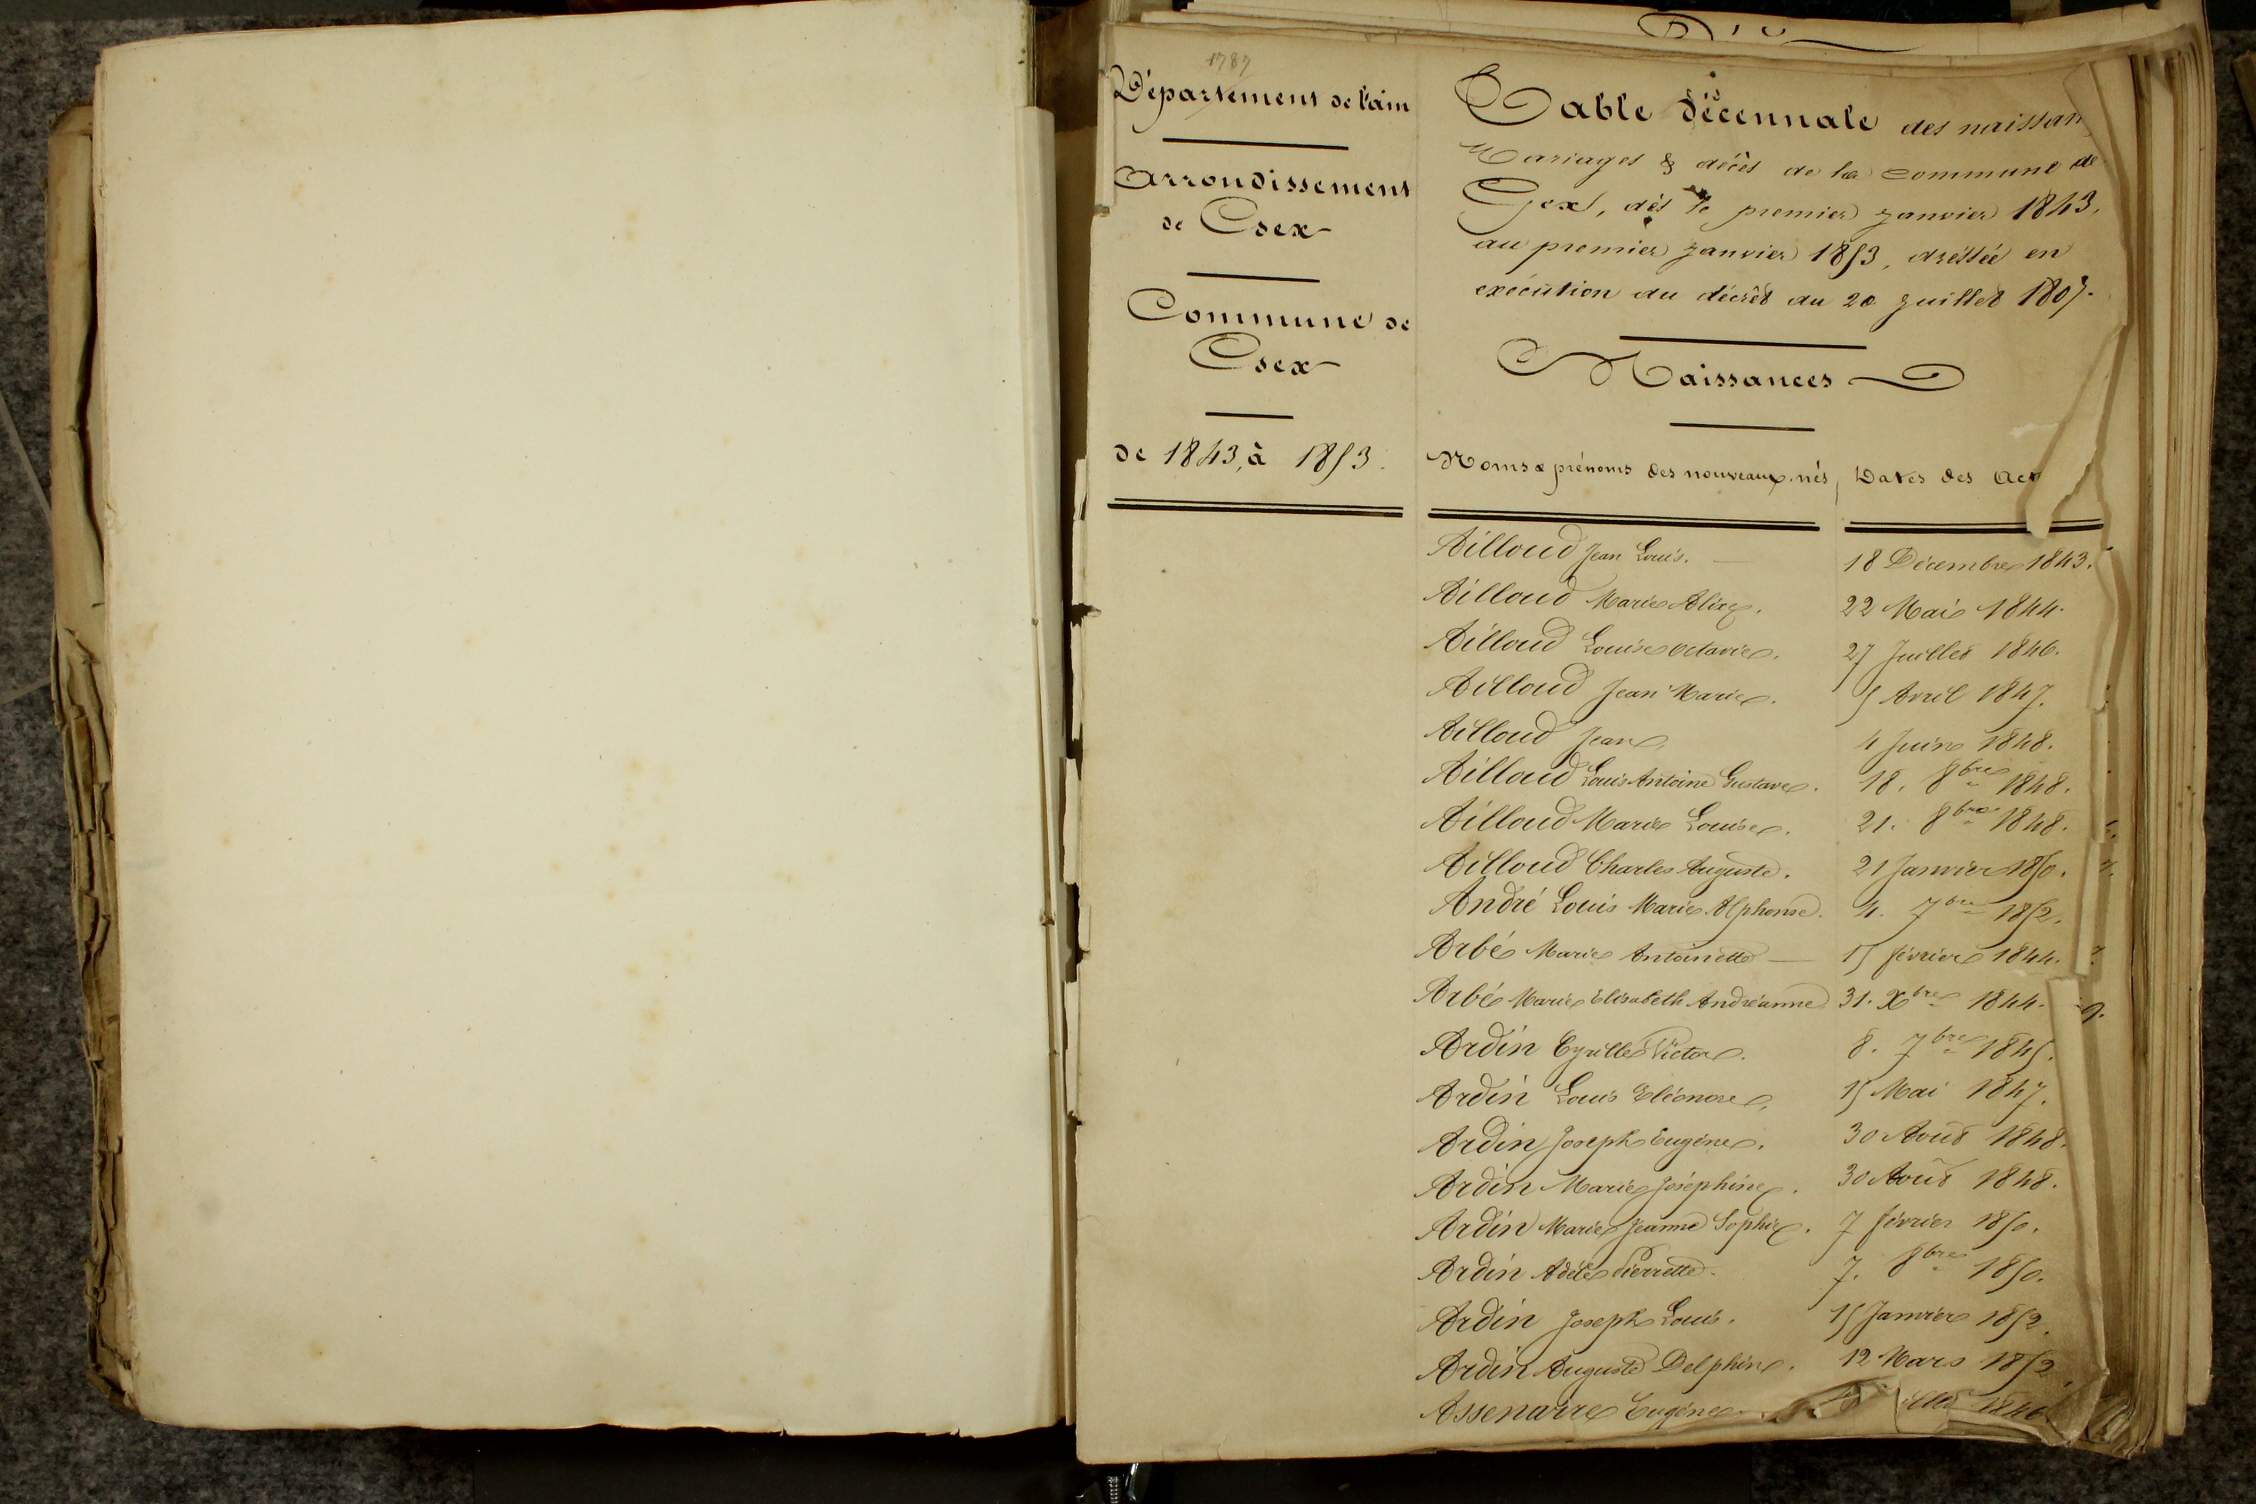 1787
Département de l'ain
Arrondissement
de Gex
Commune de
Gex
de 1843, à 1853.
Table décennale des naissan
Mariages & décès de la commune de
Gex, dès le premier janvier 1843,
au premier janvier 1853, dressée en
exécution du décrêt du 20 juillet 1807.
Naissances
Noms & prénoms des nouveaux-nés, Dates des Act
Ailloud Jean Louis. 18 Décembre 1843.
Ailloud Marie Alix. 22 Mai 1844.
Ailloud Louise Octavie. 27 Juillet 1846.
Ailloud Jean Marie. 5 Avril 1847.
Ailloud Jean. 4 Juin 1848.
Ailloud Louis Antoine Gustave. 18. 8bre 1848.
Ailloud Marie Louise. 21. 8bre 1848.
Ailloud Charles Auguste. 21 Janvier 1850.
André Louis Marie Alphonse. 4. 7bre 1852.
Arbé Marie Antoinette 15 février 1844.
Arbé Marie Elisabeth Andréanne 31. Xbre 1844.
Ardin Cyrille Victor. 8. 7bre 1845.
Ardin Louis Eléonore, 15 Mai 1847.
Ardin Joseph Eugène. 30 Août 1848.
Ardin Marie Joséphine. 30 Août 1848.
Ardin Marie Jeanne Sophie. 7 février 1850.
Ardin Adèle Pierrette. 7. 8bre 1850.
Ardin Joseph Louis. 15 Janvier 1852.
Ardin Auguste Delphin. 12 Mars 1852.
Assenarre Eugène. illet 1846